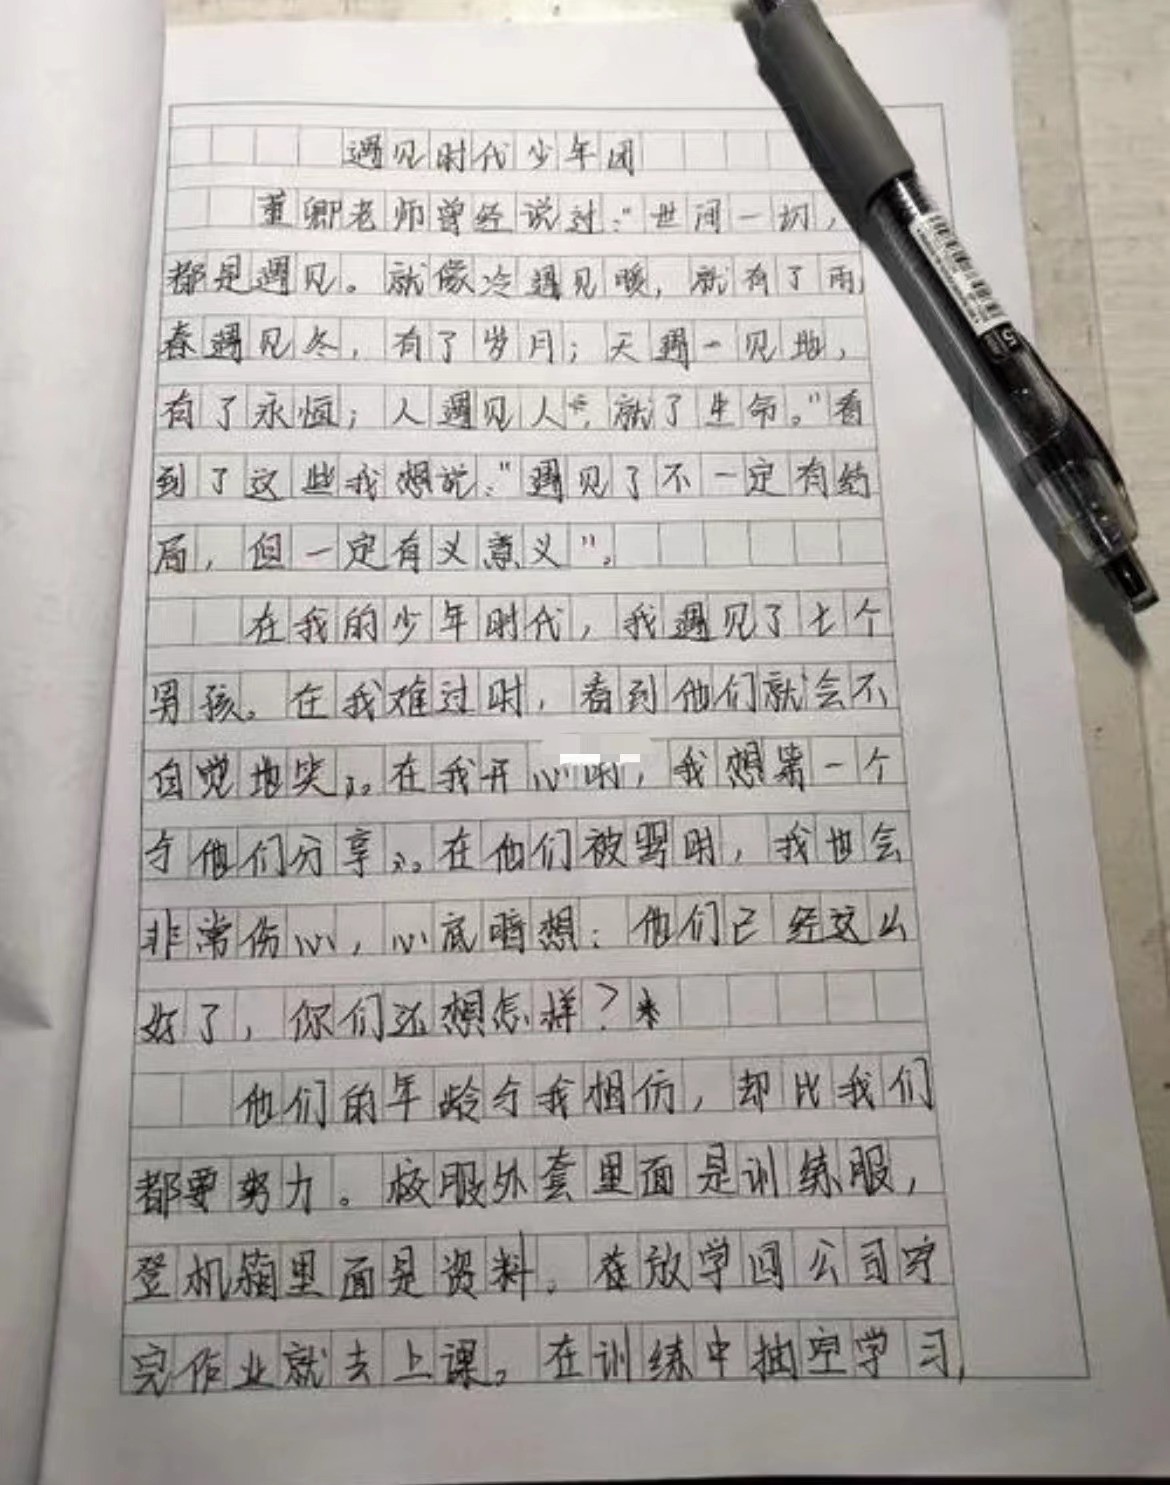 遇见时代少年团
董卿老师曾经说过:"世间一切,
都是遇见。就像冷遇见暖,就有了雨;
春遇见冬,有了岁月;天遇一见地,
有了永恒;人遇见人,就了生命。"看
到了这些我想说:"遇见了不一定有结
局,但一定有义意义"。
在我的少年时代,我遇见了七个
男孩。在我难过时,看到他们就会不
自觉地笑。在我开心时,我想第一个
与他们分享。在他们被骂时,我也会
非常伤心,心底暗想:他们已经这么
好了,你们还想怎样?
他们的年龄与我相仿,却比我们
都要努力。校服外套里面是训练服,
登机箱里面是资料。在放学回公司写
完作业就去上课。在训练中抽空学习,